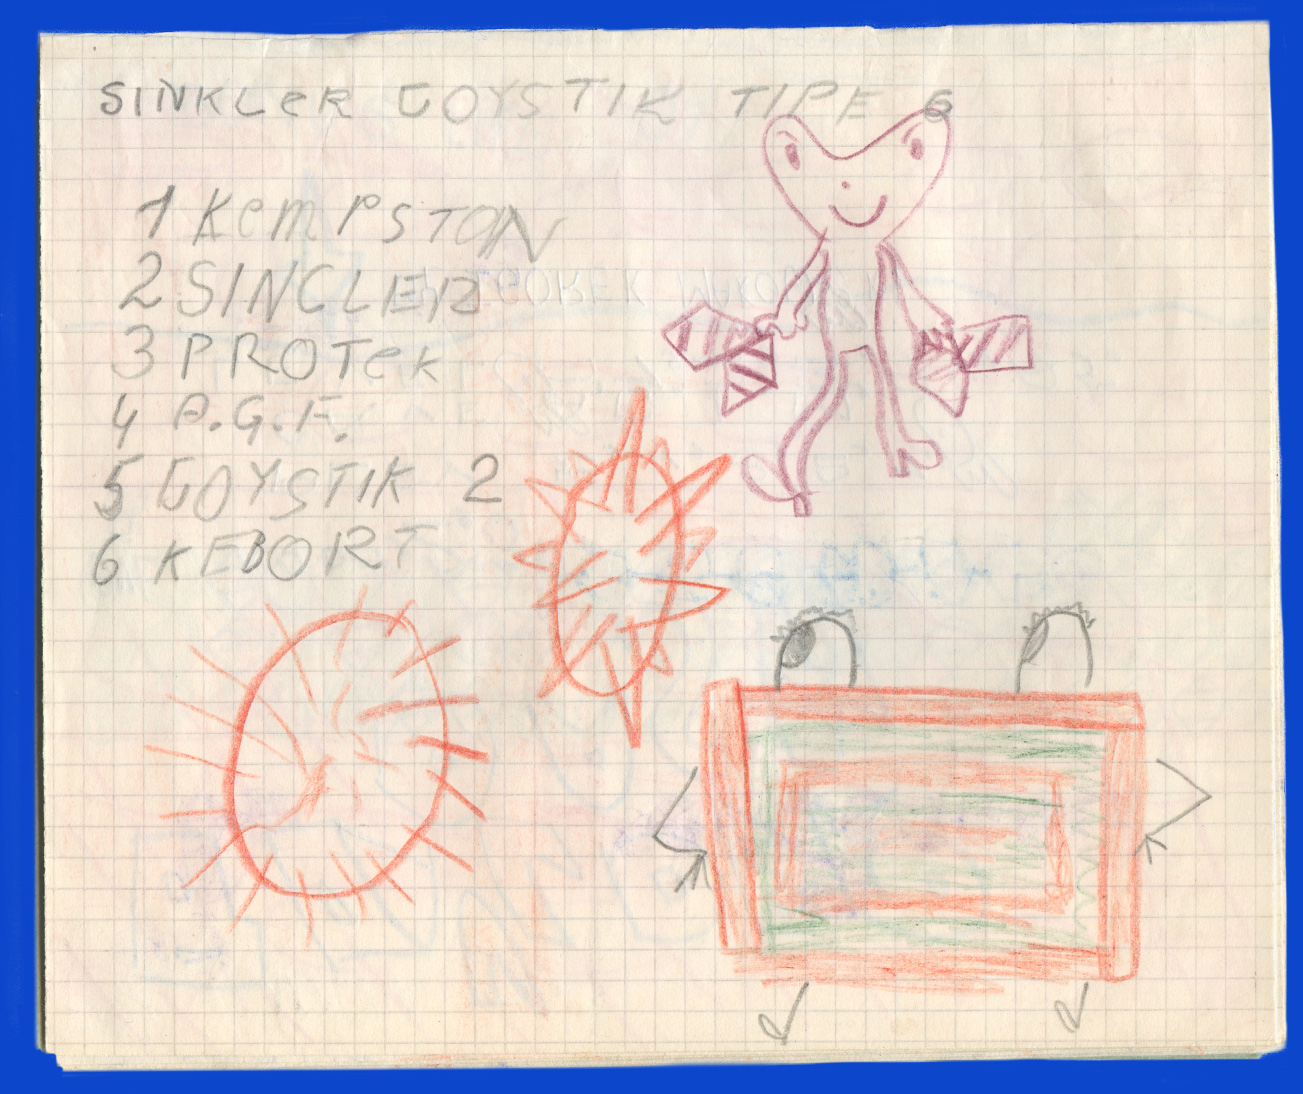 SINKLeR GOYSTIK TIPE 6
1 KemPSTON
2 SINCLER
3 PROTek
4 P.G.F.
5 GOYSTIK 2
6 KEBORT